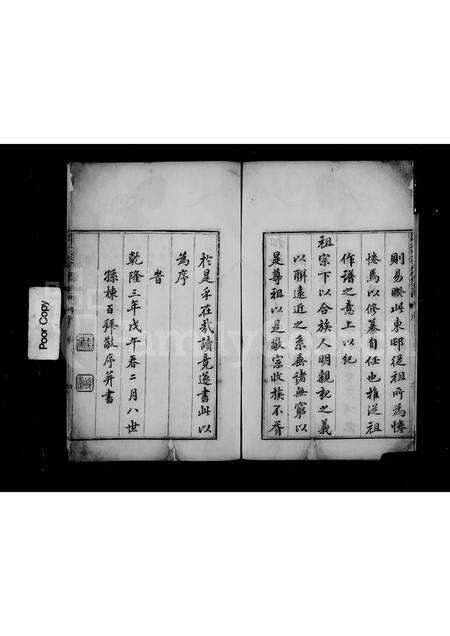 則易睽此東邨從祖所為惓
惓焉以修纂自任也推從祖
作譜之意上以紀
祖宗下以合族人明親親之義
以聯遠近之系垂諸無窮以
是尊祖以是敬宗收族不屑
於是乎在哉讀竟遂書此以
為序
旹
乾隆三年戊午春二月八世
孫棟百拜敬序并書
Poor Copy